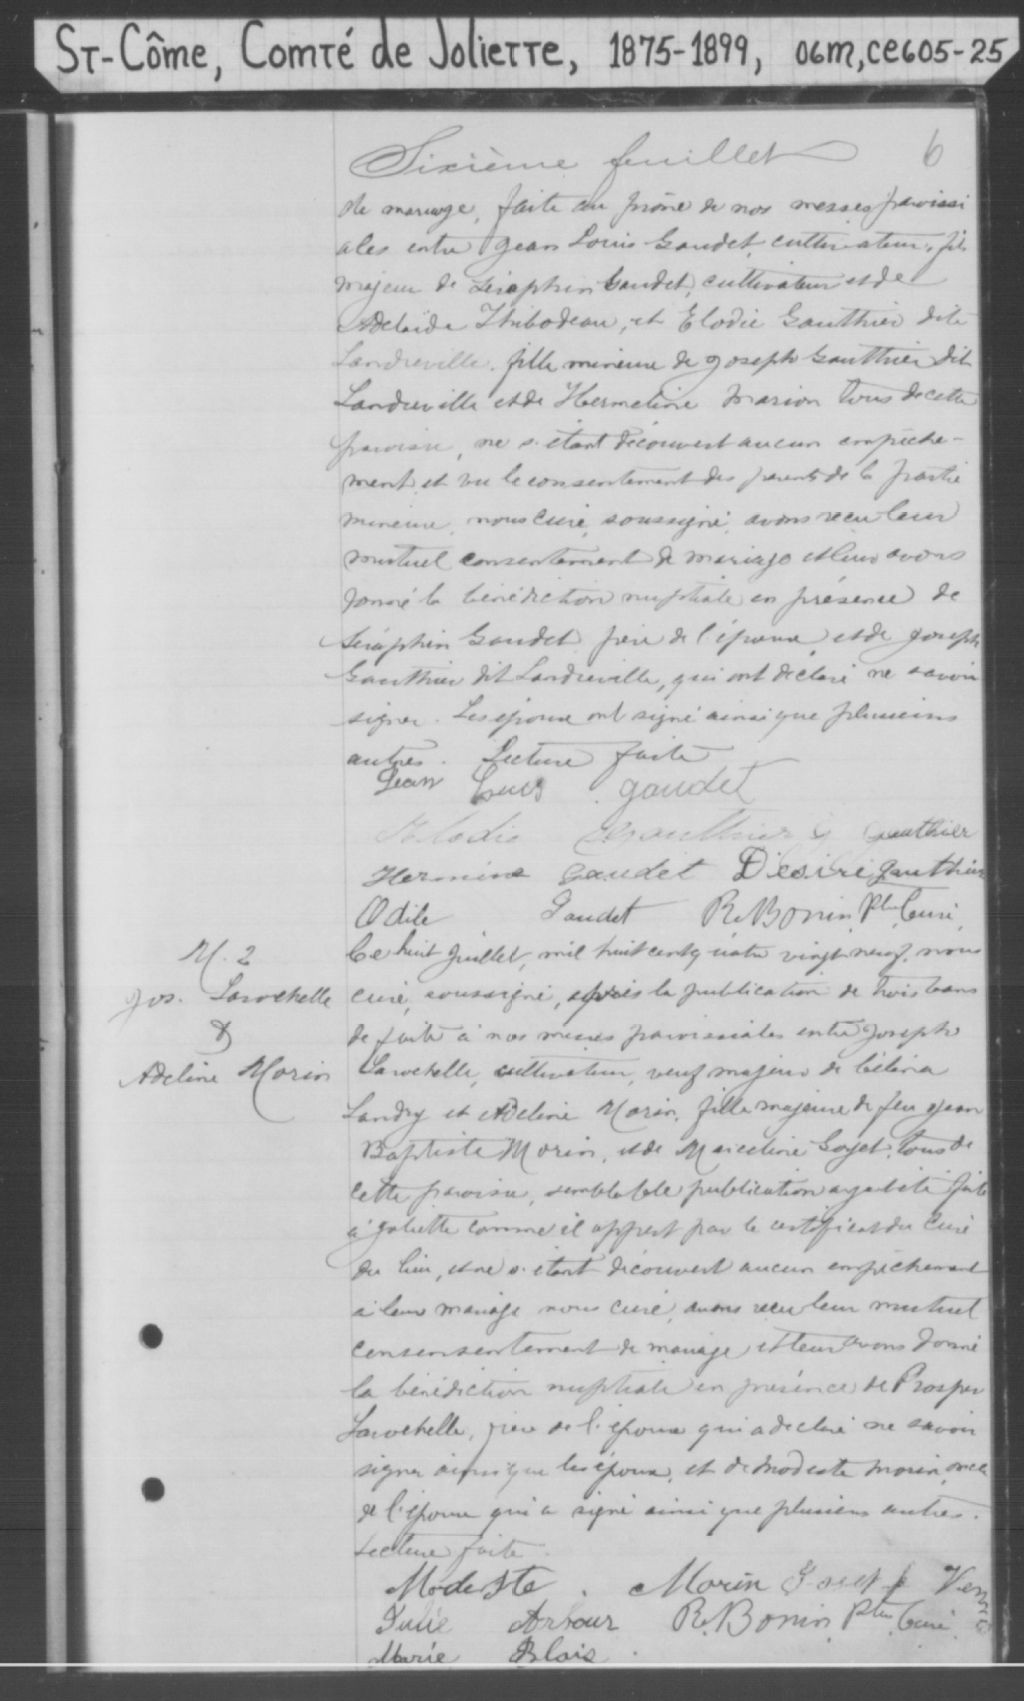 St-Côme, Comté de Joliette, 1875-1899, 06M,CE605-25
Sixième feuillet 6
de mariage, faite au prône de nos messes paroissi
ales entre Jean Louis Gaudet, cultivateur, fils
majeur de Séraphin Gaudet, cultivateur et de
Adelaïde Thibodeau, et Elodie Gauthier dite
Landreville, fille mineure de Joseph Gauthier dit
Landreville et de Hermeline Marion tous de cette
paroisse, ne s'étant découvert aucun empêche-
ment et vu le consentement des parents de la partie
mineure, nous curé, soussigné, avons reçu leur
mutuel consentement de mariage et leur avons
donné la bénédiction nuptiale en présence de
Séraphin Gaudet père de l'époux, et de Joseph
Gauthier dit Landreville, qui ont déclaré ne savoir
signer. Les époux ont signé ainsi que plusieurs
autres. Lecture faite
Jean Louis gaudet
Elodie Gauthier J Gauthier
Hermine Gaudet Désiré Gauthier
Odile Gaudet R. Bonin Ptre Curé
M. 2
Jos. Larochelle
&
Adeline Morin
Ce huit Juillet, mil huit cent quatre vingt neuf, nous
curé, soussigné, après la publication de trois bans
de faite à nos messes paroissiales entre Joseph
Larochelle, cultivateur, veuf majeur de Célina
Landry et Adeline Morin, fille majeure de feu Jean
Baptiste Morin, et de Marceline Goyet, tous de
cette paroisse, semblable publication ayant été faite
à Joliette comme il appert par le certificat du Curé
du lieu, et ne s'étant découvert aucun empêchement
à leur mariage nous curé, avons reçu leur mutuel
consensentement de mariage, et leur avons donné
la bénédiction nuptiale en présence de Prosper
Larochelle, père de l'époux qui a déclaré ne savoir
signer ainsi que les époux, et de Modeste Morin, oncle
de l'épouse qui a signé ainsi que plusieurs autres.
Lecture faite.
Modeste Morin Joseph
Julie Arbour R. Bonin Ptre Curé
Marie Blais